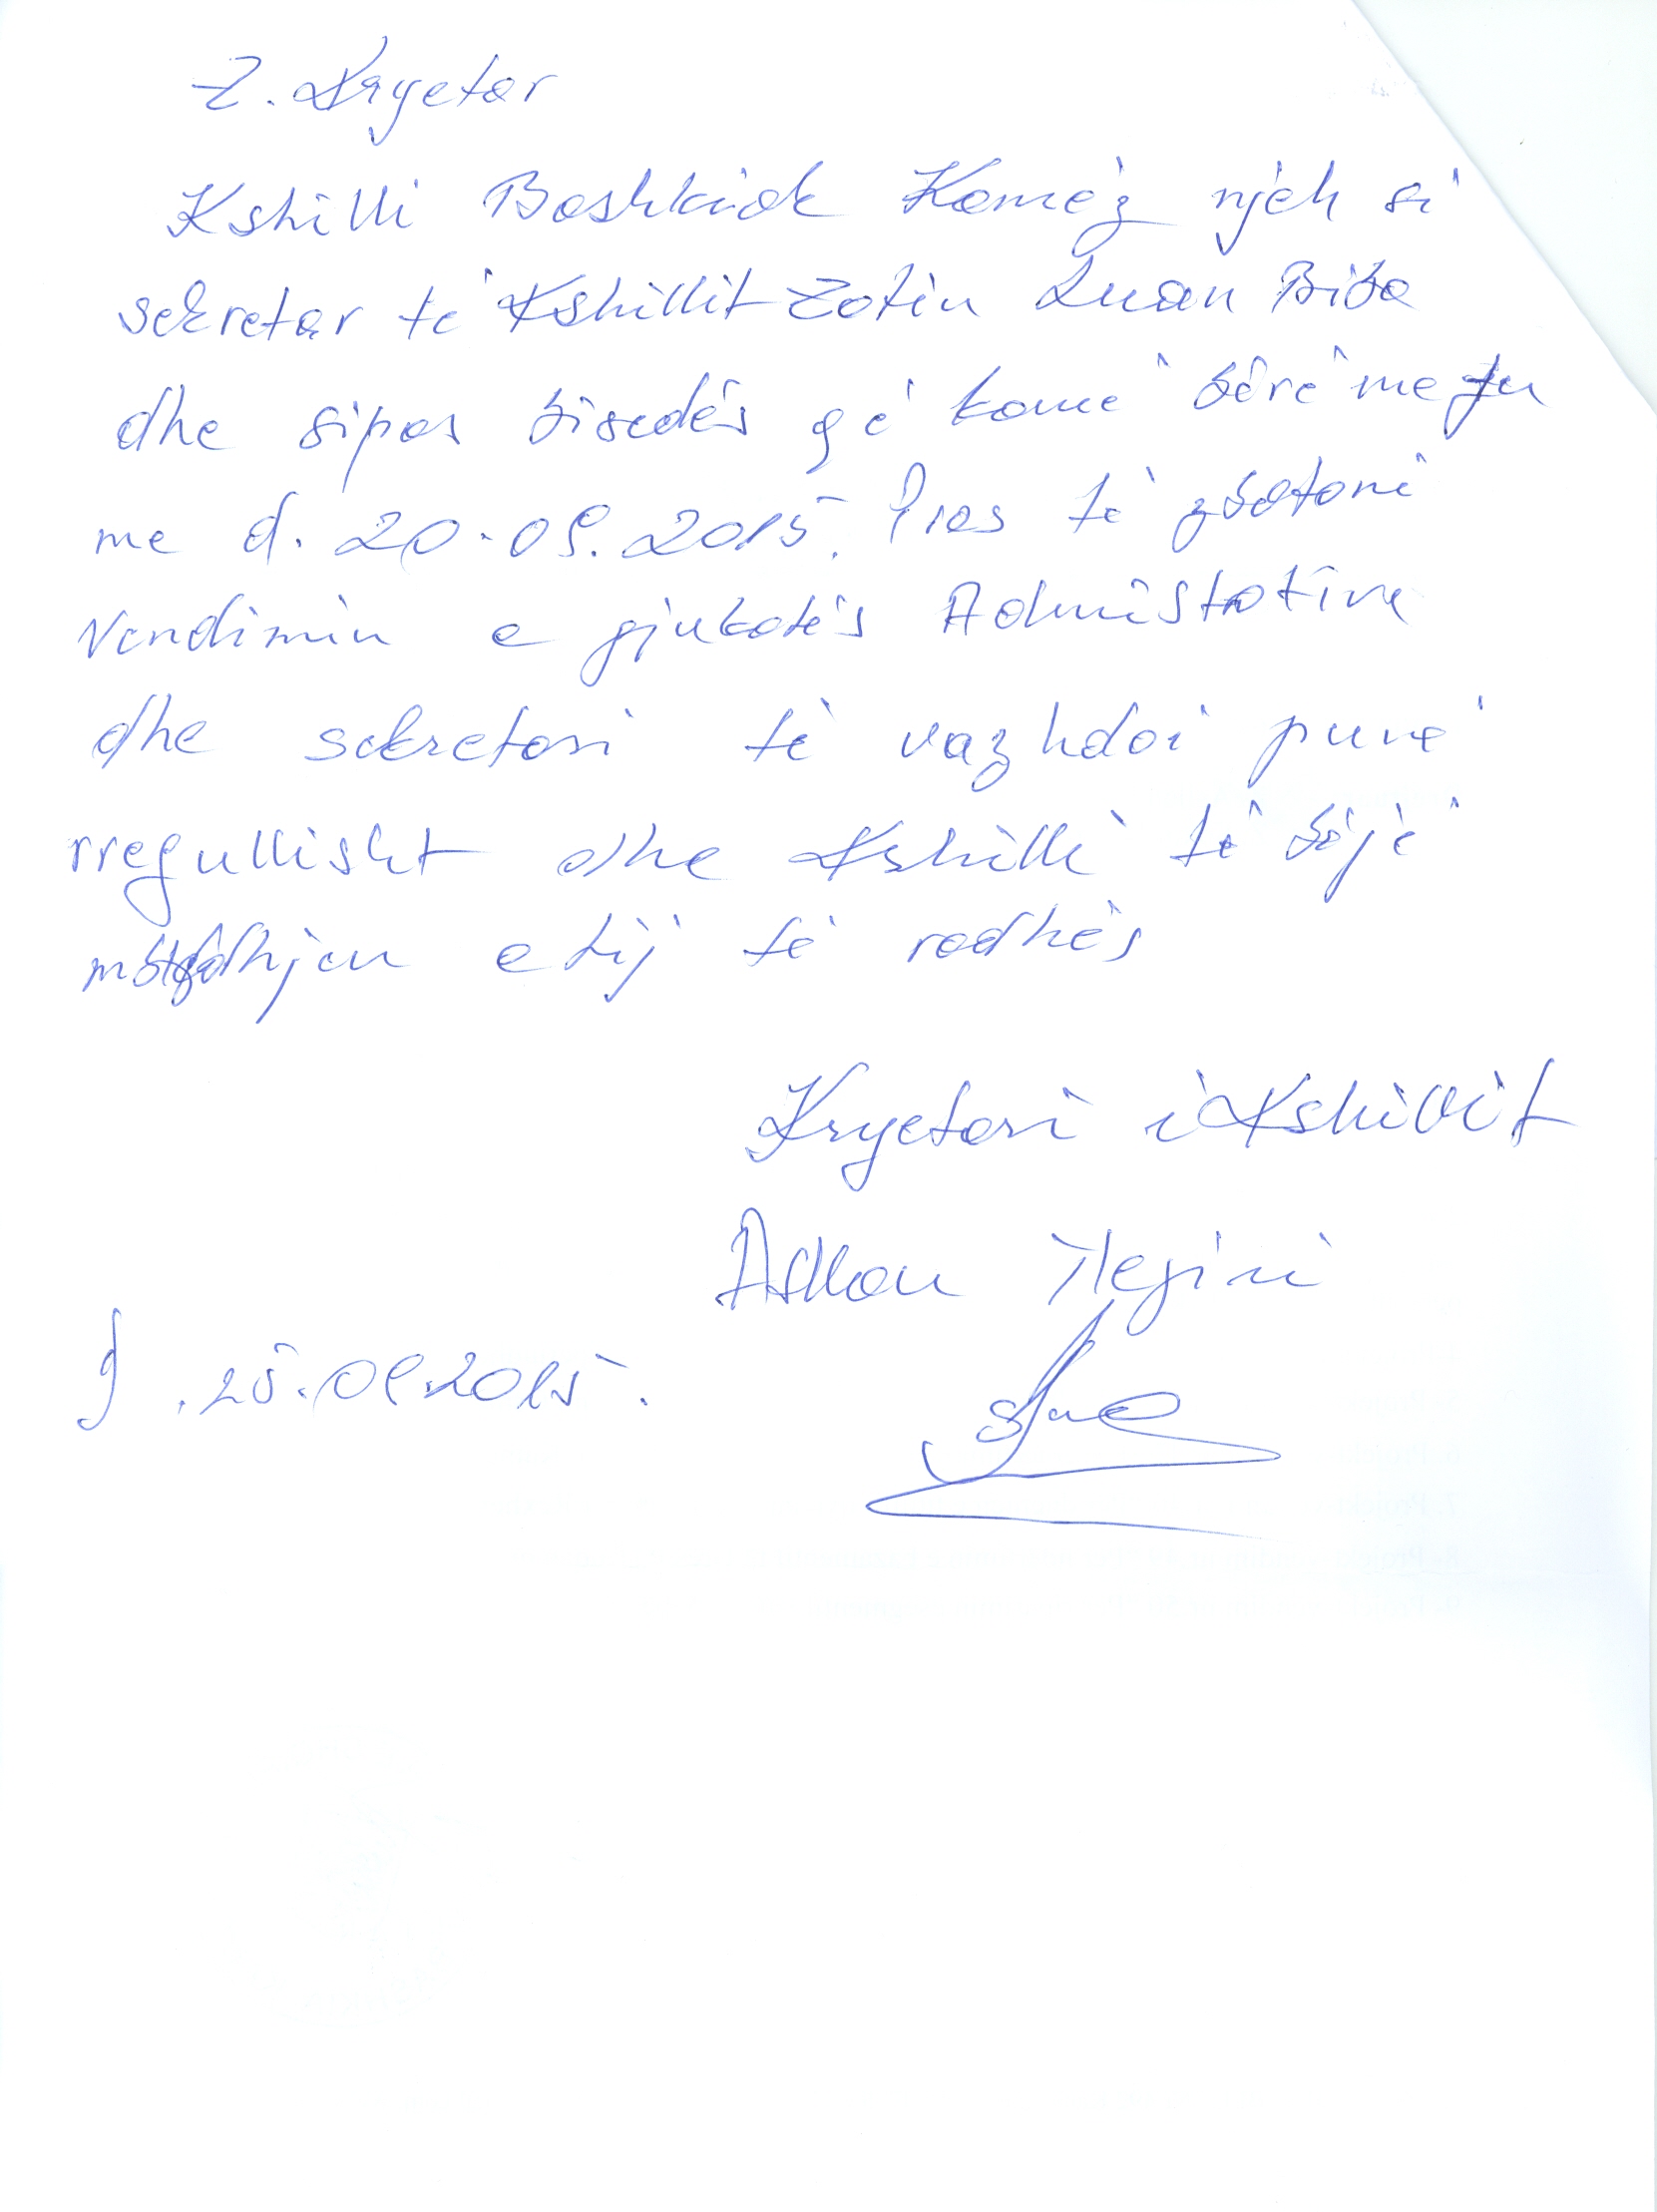 Z. Kryetar
Kshilli Bashkiak Kamëz njeh si
sekretar të Kshillit Zotin Luan Biba
dhe sipas bisedës që kame bërë me ju
me d. 20.09.2015. Pres të zbatoni
Vendimin e gjukatës Admistrative
dhe sekretari të vazhdoi punë
rregullisht dhe Kshilli të bëjë
mbledhjen e tij të radhës
Kryetari i Kshillit
D .25.09.2015.